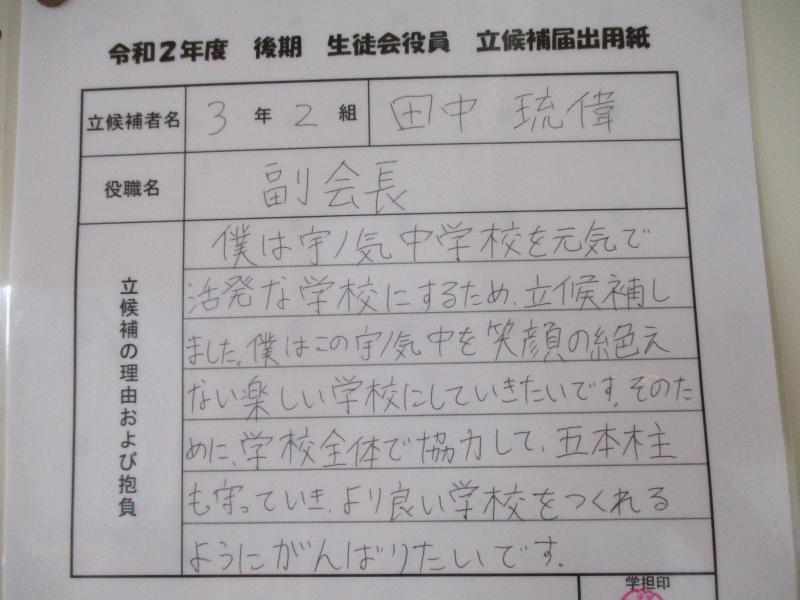 令和2年度 後期 生徒会役員 立候補届出用紙
立候補者名 3 年 2 組 田中 琉偉
役職名 副会長
立候補の理由および抱負
僕は宇ノ気中学校を元気で
活発な学校にするため、立候補し
ました。僕はこの宇ノ気中を笑顔の絶え
ない楽しい学校にしていきたいです。そのた
めに、学校全体で協力して、五本柱
も守っていき、より良い学校をつくれる
ようにがんばりたいです。
学担印